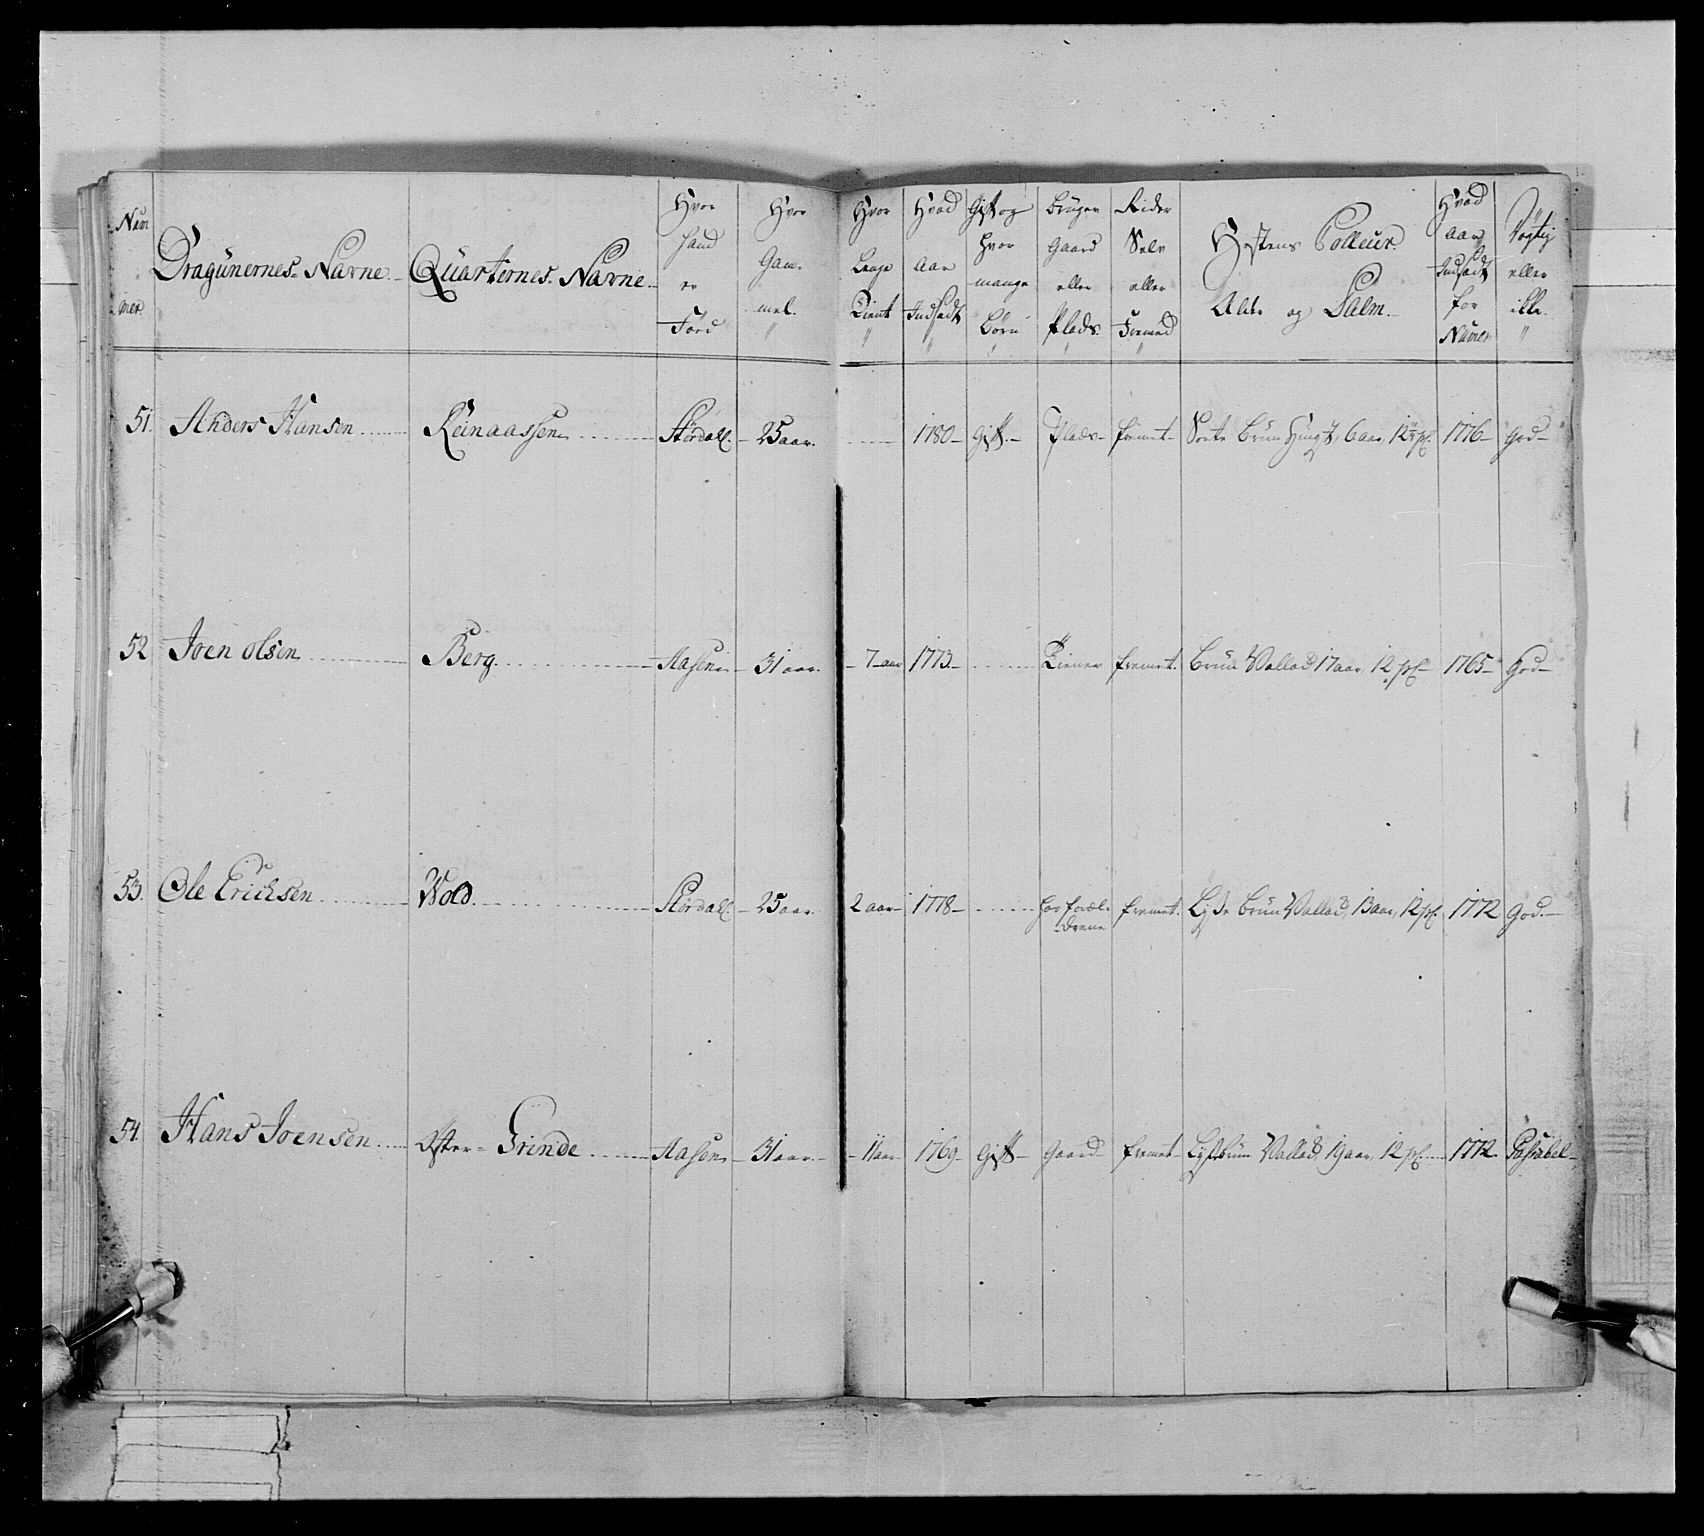 Num mer
Dragunernes Navne
Quarternes Navne
Hvor hand er Förd
Hvor Gam- mel.
Hvor Lenge Tient
Hvad Aar Indsadt
Gift og hvor mange Börn
bruger Gaard eller Plads.
Rider Selv eller Fremed
Hestens Colleur Alder og Palm.
Hvad aar Indsadt for Numer
Dygtig eller ikke.
51. Anders Hansen Reinaassen Störda͞l. 25 aar. 1780 Gift Plads fremet Sorte brun Hingst, 6 aar, 1776 god
52 Joen olsen Berg Aasen 31 aar. 7 aar 1773 Tiener fremet. brun Vallad 17 aar, 12 pl 1765 god
53. Ole Ericksen Wold Stördall. 25 aar. 2 aar 1778 hos foræl-
drene fremet. Lyse brun Vallad, 13 aar, 12 pl. 1772 god.
54. Hans Joensen Öster Grinde Aasen 31 aar 11 aar 1769 Gift Gaard fremet Lysbrun Vallad, 19 aar, 12 pl. 1772. Passabel